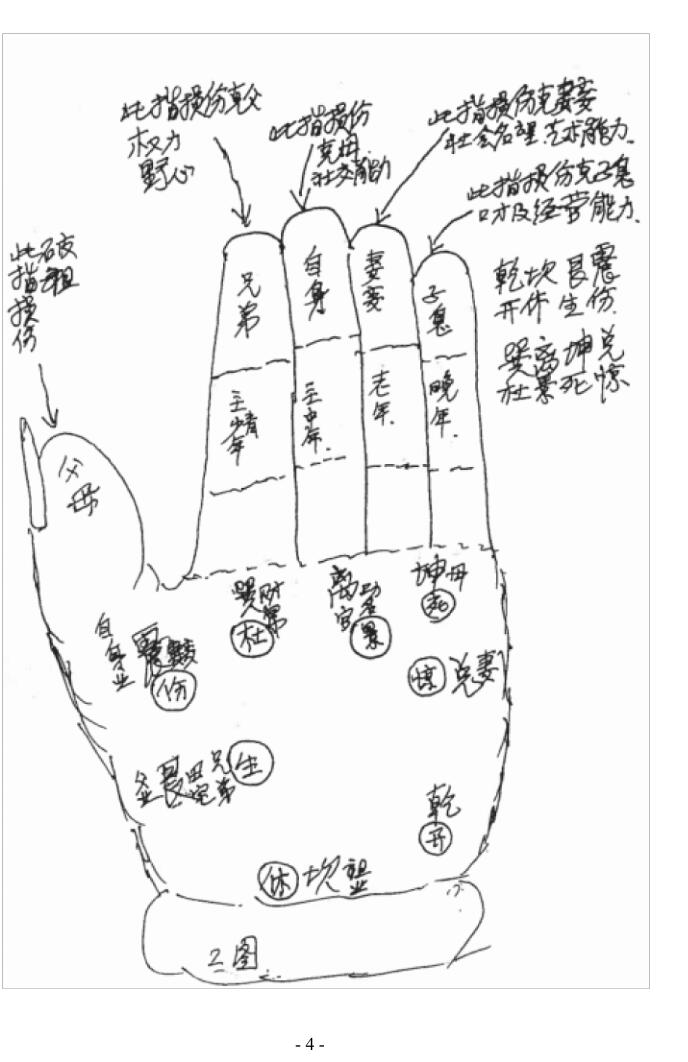 此指损份克父
权力
野心
此指损份
克母
社交能力
此指损伤克妻妾
社会名望.艺术能力.
此指损份克子息
口才及经营能力.
此指损份
破祖
乾坎艮震
开休生份.
巽离坤兑
杜景死惊
兄弟
自身
妻妾
子息
主青少年
主中年.
老年.
晚年.
父母
巽财帛
杜
离宫功名
景
坤母
死
自身业
震
份
惊
兑妻
父业
艮田宅
兄弟
生
乾
开
休
坎祖业
2图
- 4 -